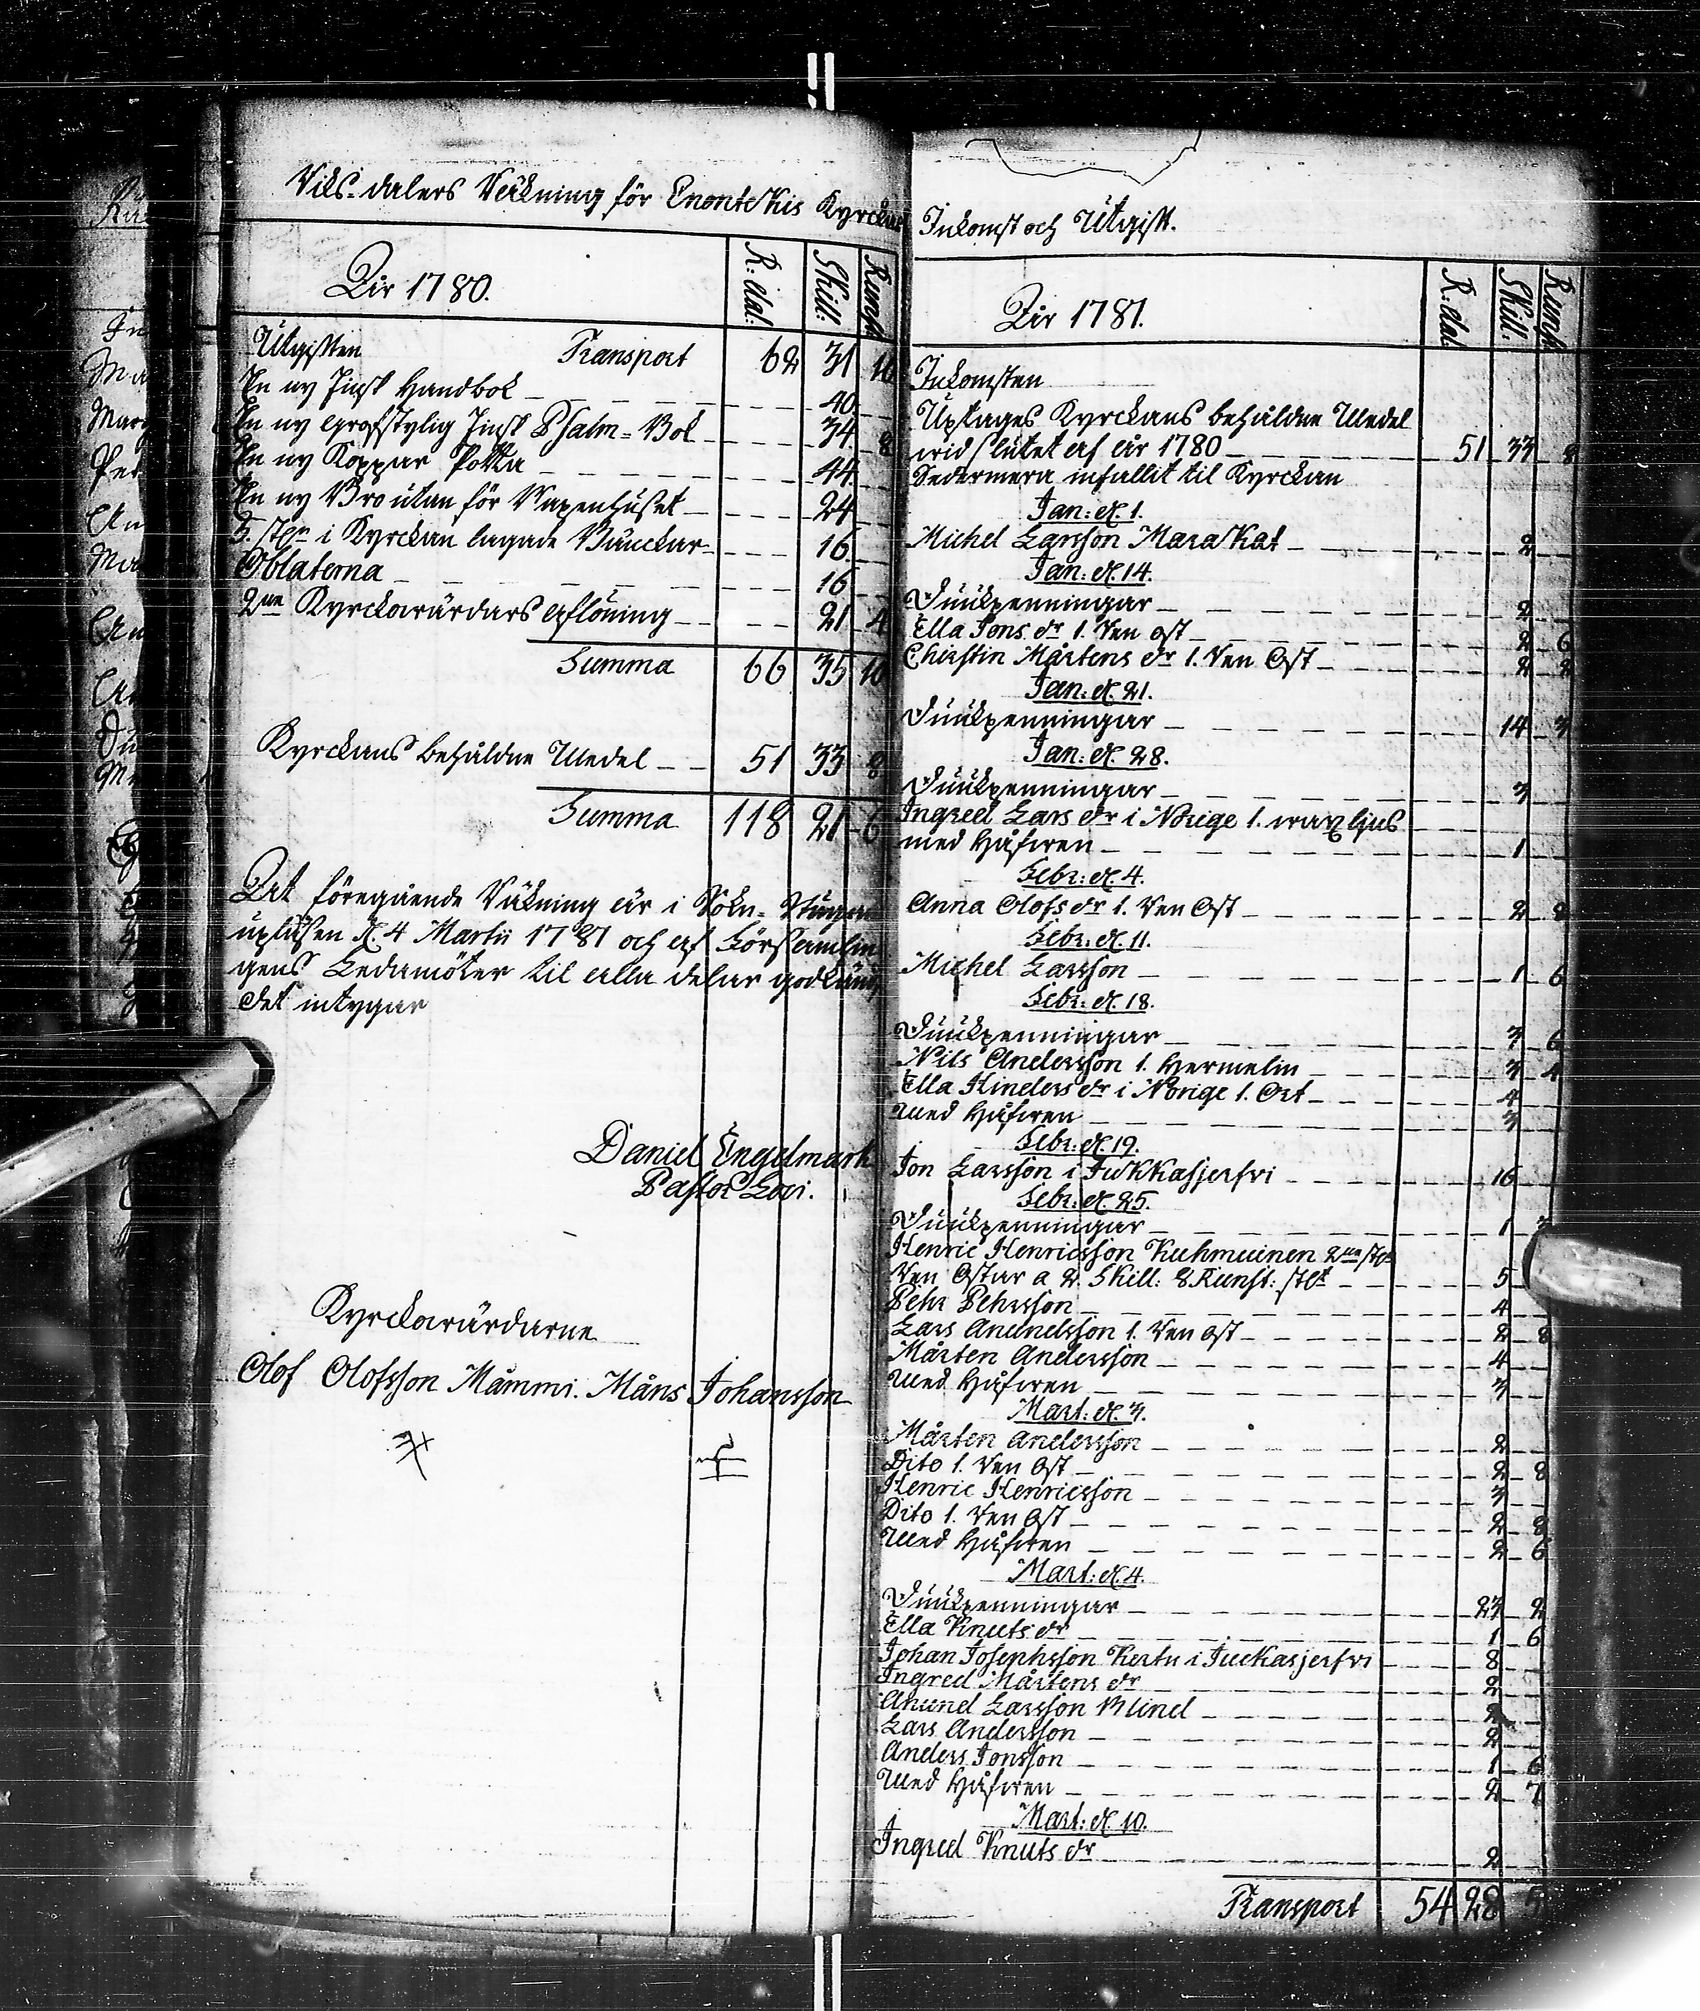 Riks-dalers Räkning för Enontekis Kyrckas
År 1780.
R:dal: Skill: Runst:
Utgiften Transport 62 31 10
En ny Finsk Handbok 40
En ny grofstylig Finsk Psalm-Bok 34 8
En ny Koppar Potta 44
En ny Bro utan för Wapenhuset 24
5. st:n i Kyrckan lagade Bänckar 16
Oblaterna 16
2ne Kyrckowärdars aflöning 21 4
Summa 66 35 10
Kyrckans behåldne Medel 51 33 8
Summa 118 21 6
Det föregående Räkning är i Sokn-Stugan
upläsen d. 4 Martii 1781 och af Församlin
gens Ledamöter til alla delar godkänd
det intygar
Daniel Engelmark
Pastor Loci.
Kyrckowärdarne
Olof Olofsson Mämmi. Måns Johansson
Inkomst och Utgift.
År 1781.
R:dal: Skill: Runst:
Inkomsten
Uptages Kyrckans behåldne Medel
wid slutet af år 1780 51 33 8
Sedermera infallit til Kyrckan
Jan: d. 1.
Michel Larsson Marakat 2
Jan: d. 14.
Junkpenningar 2
Ella Jons dr 1. Ren ost 2 6
Chirstin Mårtens dr 1. Ren Ost 2 8
Jan: d. 21.
Junkpenningar 14 3
Jan: d. 28.
Junkpenningar 3
Ingred Lars dr i Norige 1. waxljus
med Håfwen 1
Febr: d. 4.
Anna Olofs dr 1. Ren Ost 2 8
Febr: d. 11.
Michel Larsson 1 6
Febr: d. 18.
Junkpenningar 3 6
Nils Andersson 1. Hermelin 3 4
Ella Hinders dr i Norige 1. Ort 4
Med Håfwen 3
Febr: d. 19.
Jon Larsson i Jukkasjerfvi 16
Febr: d. 25.
Junkpenningar 1
Henric Henricsson Kuhmuinen 2ne st:n
Ren Ostar a 2. Skill: 8. Runst: st:t 5
Pehr Pehrsson 4
Lars Amundsson 1. Ren ost 2 8
Mårten Andersson 4
Med Håfwen 3
Mart: d. 3.
Mårten Andersson 2
Dito 1. Ren Ost 2 8
Henric Henricsson 3
Dito 1. Ren Ost 2 8
Med Håfwen 2 6
Mart: d. 4.
Junkpenningar 23 2
Ella Knuts dr 1 6
Johan Josephsson Kertu i Juckasjerfvi 8
Ingred Mårtens dr 2
Amund Larsson Blind 2
Lars Andersson 2
Anders Jonsson 1 6
Med Håfwen 2 7
Mart: d. 10.
Ingred Knuts dr 2
Transport 54 28 5